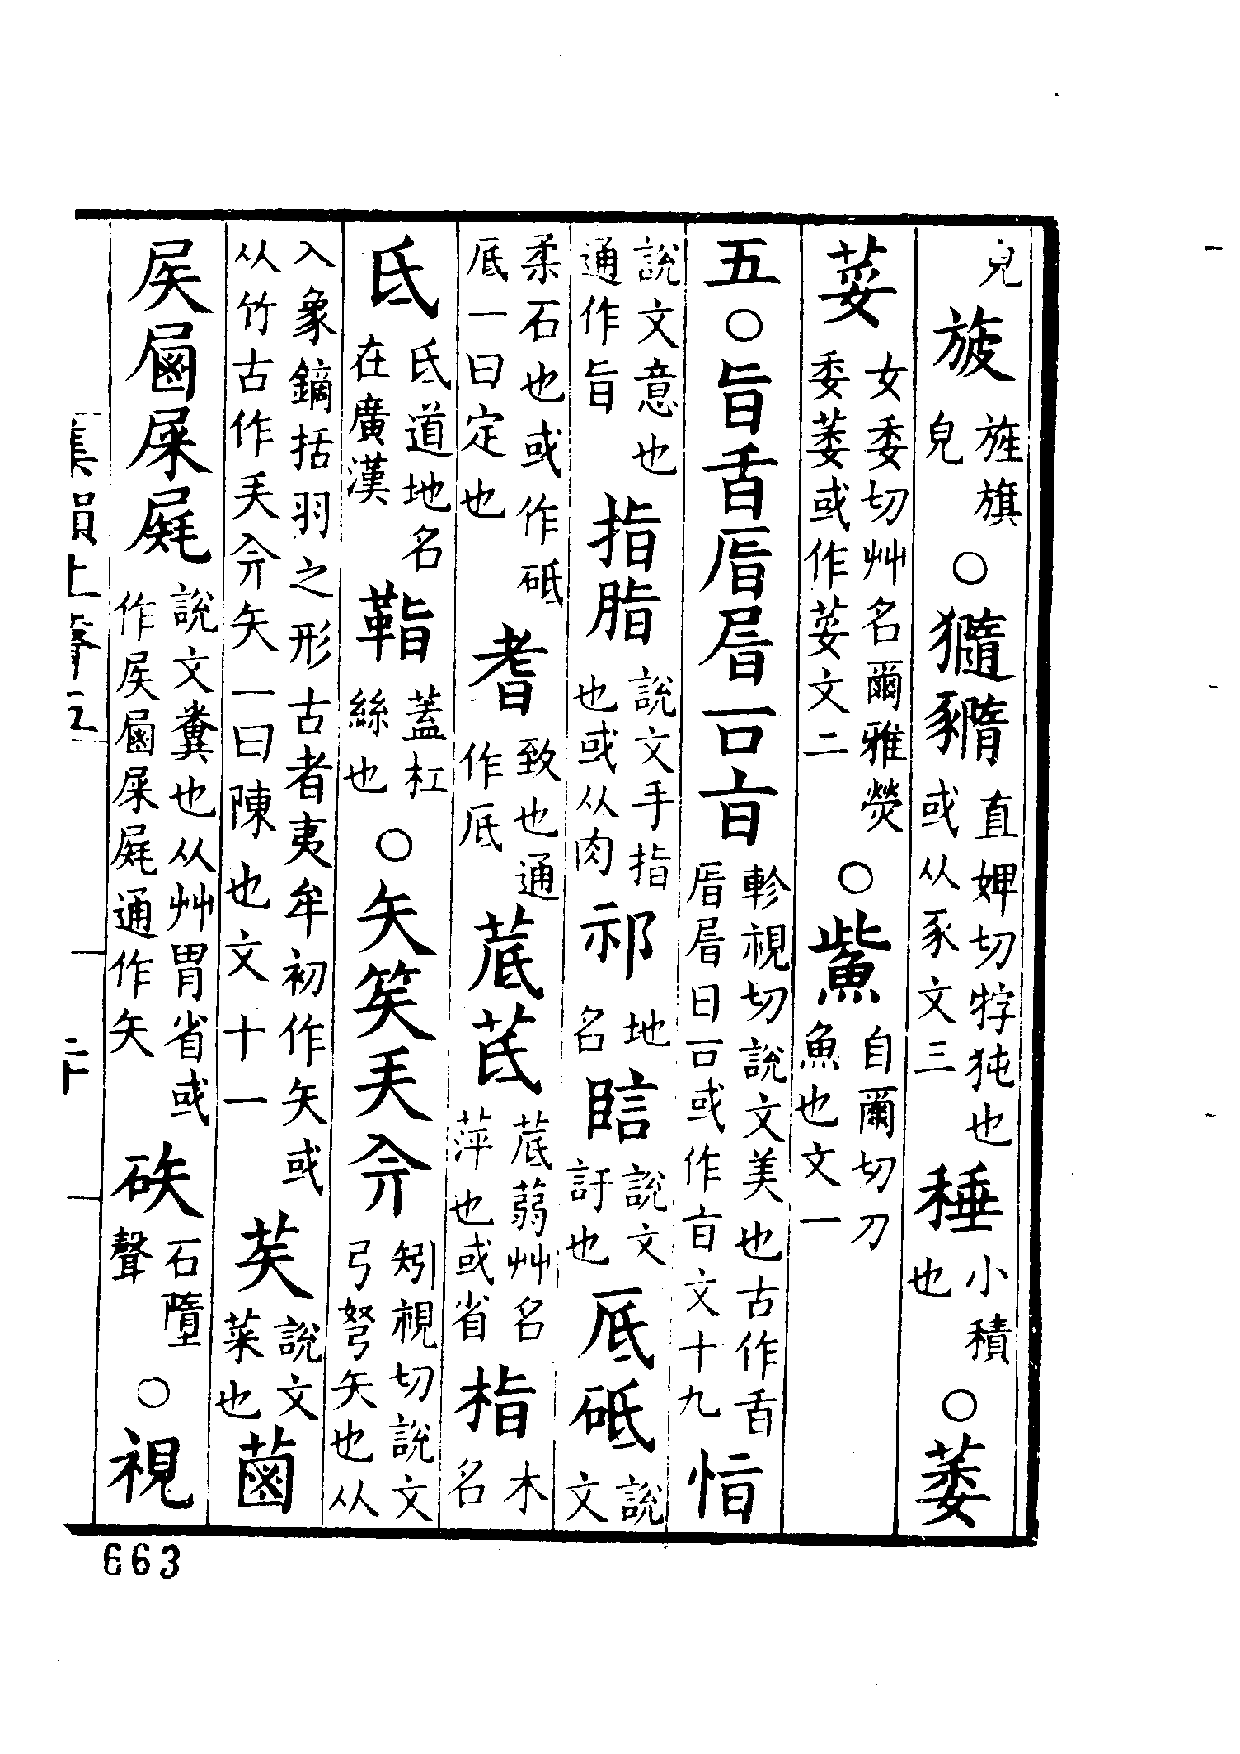 皃旇旌旗皃○直婢切牸㹠也或从豕文三𥞃小積也○萎
荽女委切艸名爾雅熒委萎或作荽文二○鮆自爾切刀魚也文一
五○旨軫視切說文美也古作曰或作文十九恉
說文意也通作旨指脂說文手指也或从肉祁地名說文訐也厎砥說文
柔石也或作砥厎一曰定也耆致也通作厎菧茋菧蒻艸名萍也或省栺木名
氐氐道地名在廣漢䩢蓋杠絲也○矢笶矧視切說文弓弩矢也从
入象鏑括羽之形古者夷牟初作矢或从竹古作矢一曰陳也文十一說文菜也
屎說文糞也从艸胃省或作屎通作矢石墮聲○視
集韻上聲五
二十
663